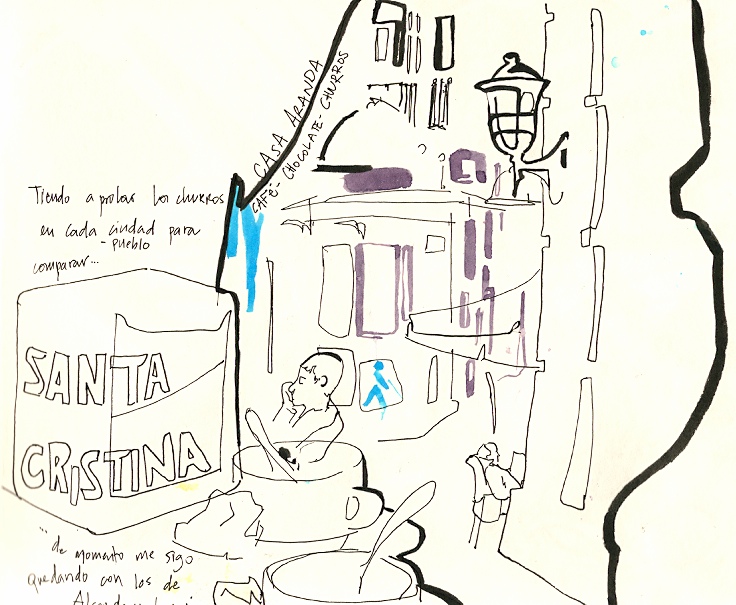 CASA ARANDA
CAFÉ - CHOCOLATE - CHURROS
Tiendo a probar los churros
en cada ciudad para
- pueblo
comparar...
SANTA
CRISTINA
... de momento me sigo
quedando con los de